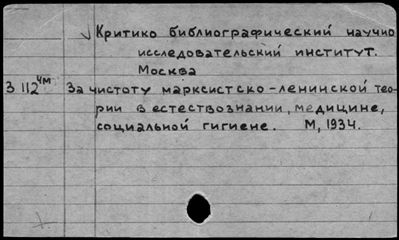 Критико библиографический научно
исследовательский институт.
Москва
З 112 чм За чистоту марксистско-ленинской тео-
рии в естествознании, медицине,
социальной гигиене. М, 1934.